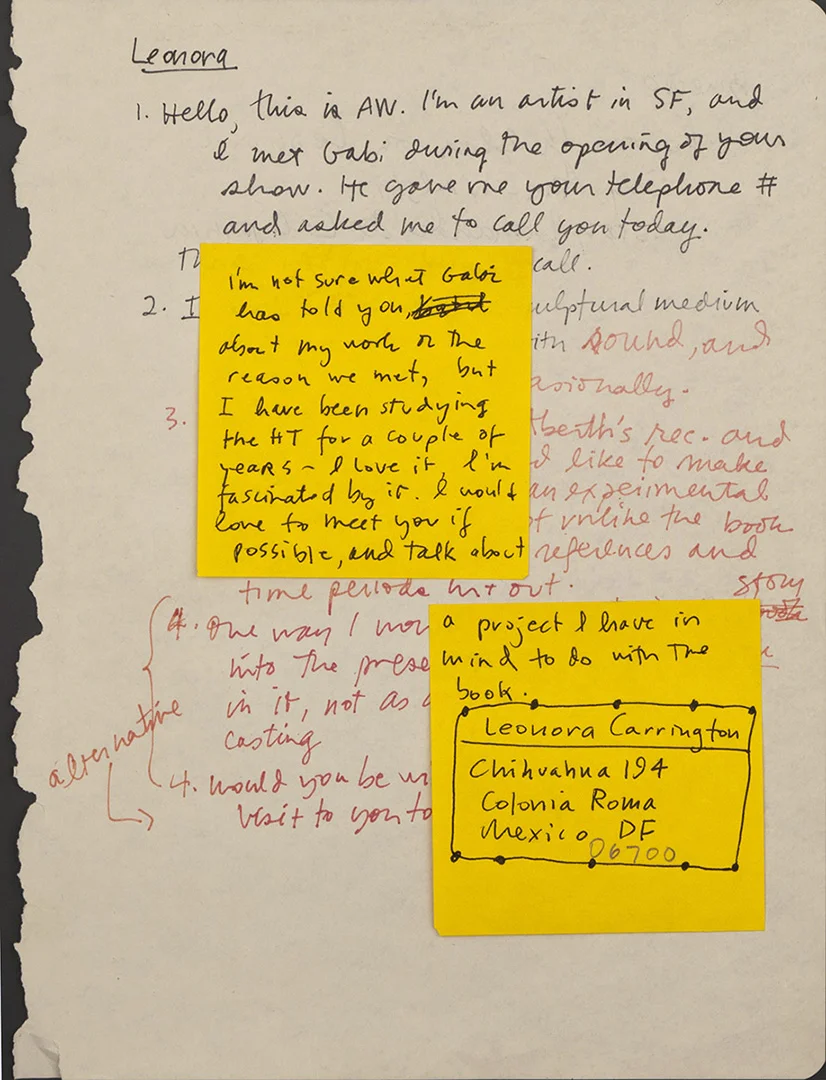 Leonora
1. Hello, this is AW. I'm an artist in SF, and
I met Gabi during the opening of your
show. He gave me your telephone #
and asked me to call you today.
call.
2. I
medium
sound, and
3.
rec. and
like to make
an expeirmental
unlike the book
references and
time periods out.
story
4. One way I
into the
in it, not as
casting
alternative
4. Would you be
visit to you to
I'm not sure what Gabi
has told you,
about my work or the
reason we met, but
I have been studying
the HT for a couple of
years – I love it, I'm
fascinated by it. I would
love to meet you if
possible, and talk about
a project I have in
mind to do with the
book.
Leonora Carrington
Chihuahua 194
Colonia Roma
Mexico, DF
06700